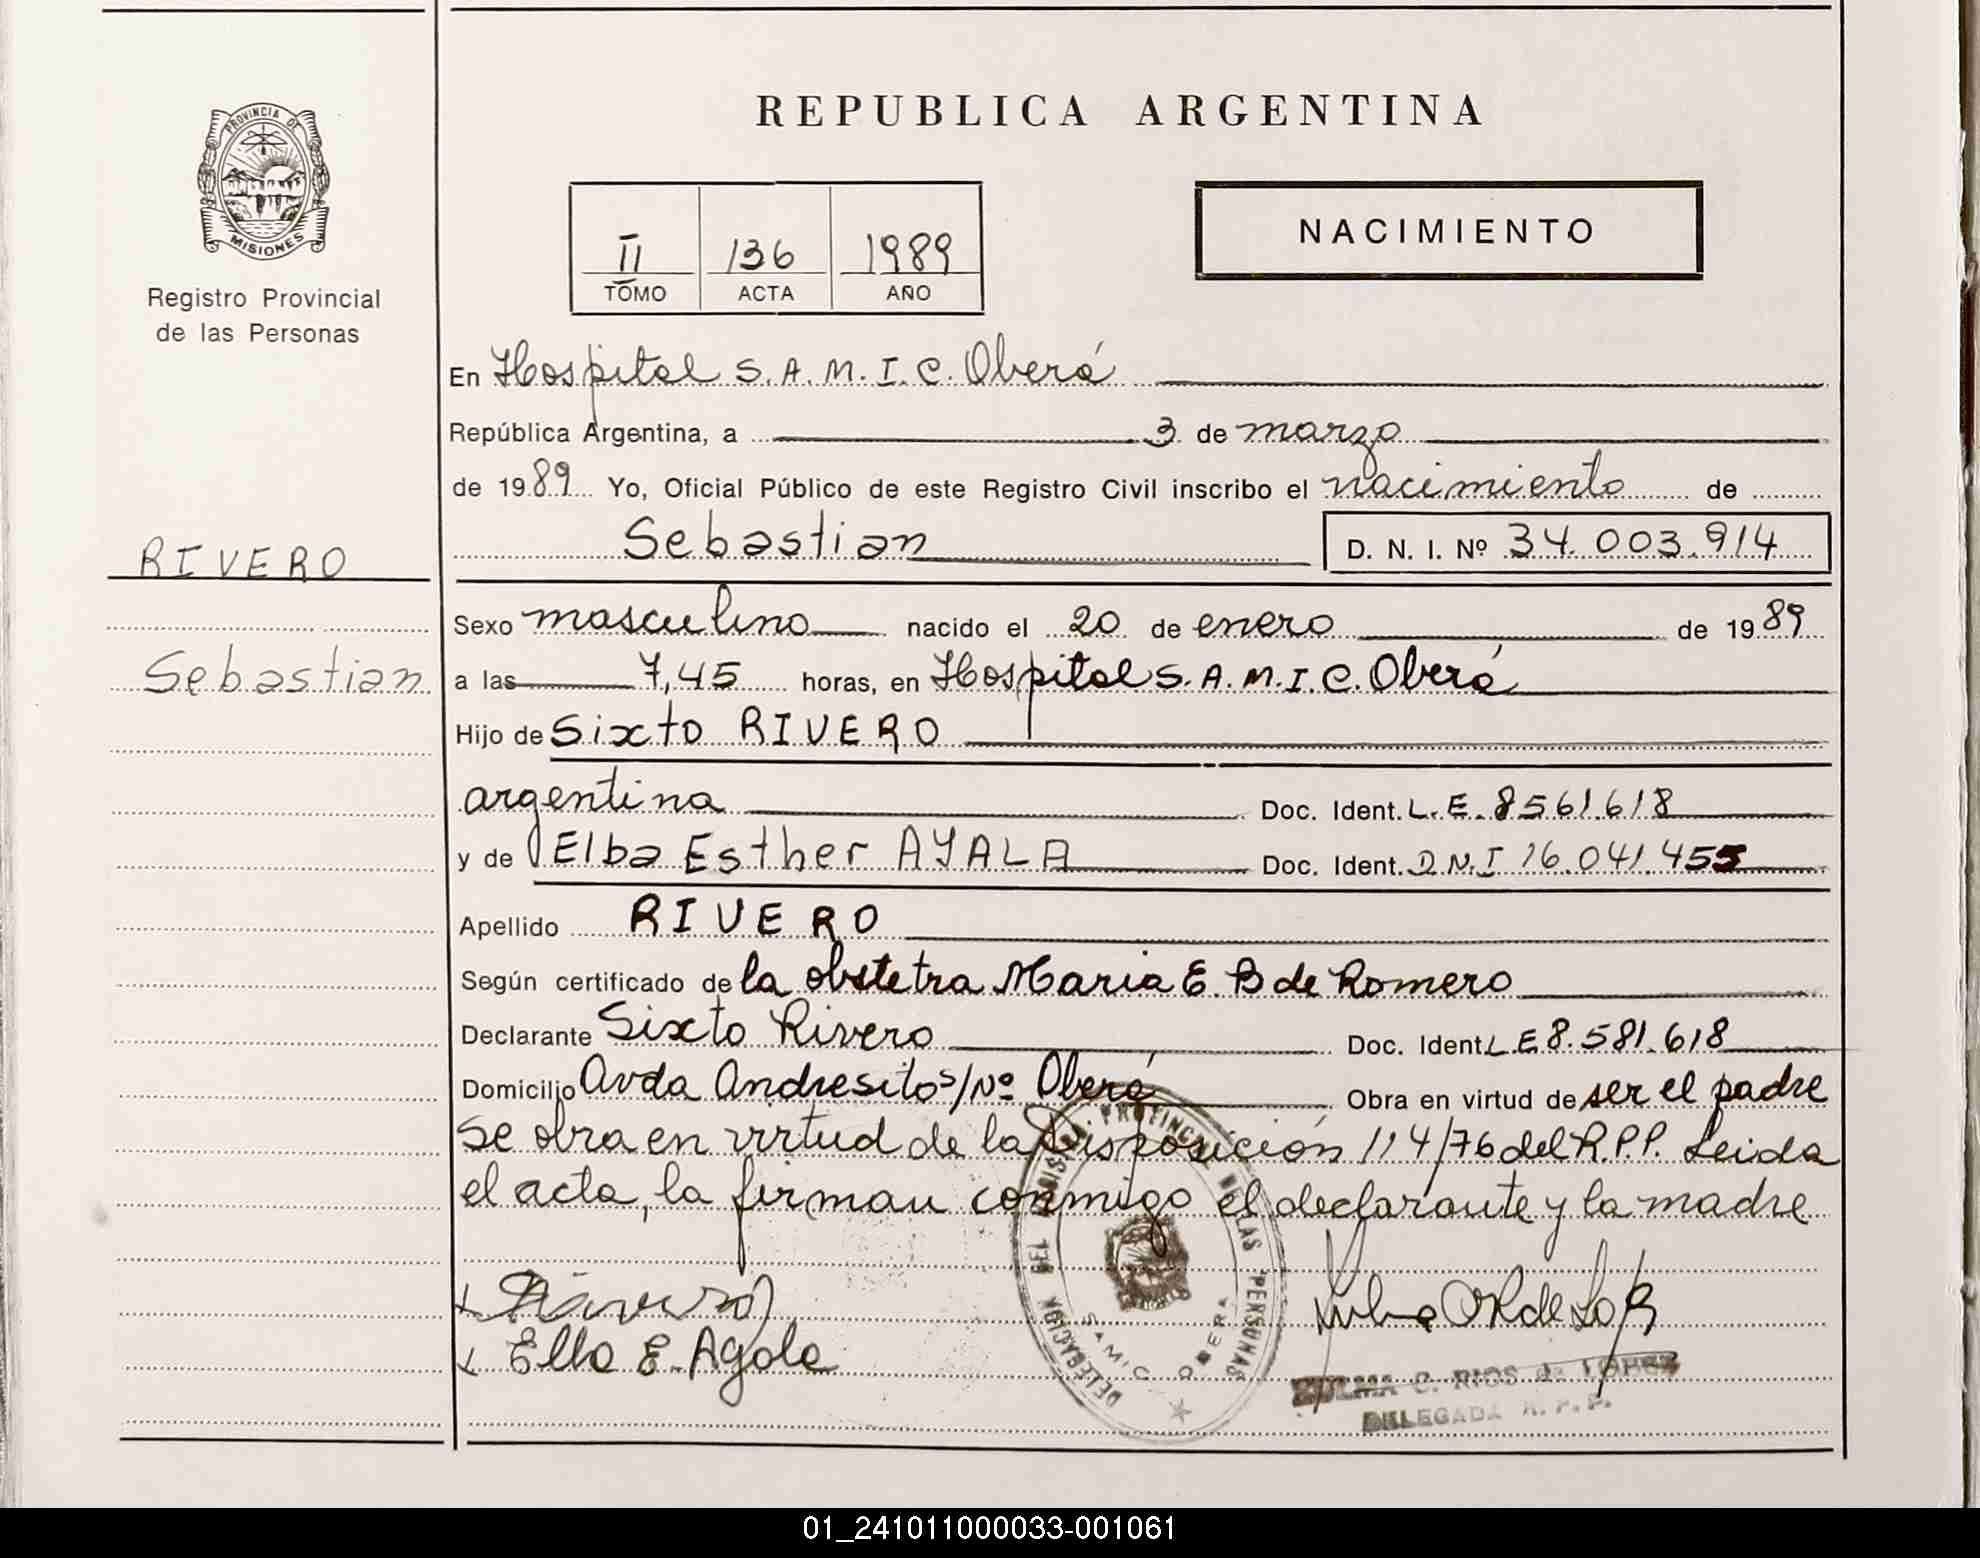 PROVINCIA DE
MISIONES
Registro Provincial
de las Personas
RIVERO
Sebastian
REPUBLICA ARGENTINA
II 136 1989
TOMO ACTA AÑO
NACIMIENTO
En Hospital S.A.M.I.C. Oberá
República Argentina, a 3 de marzo
de 1989 Yo, Oficial Público de este Registro Civil inscribo el nacimiento de
Sebastian D. N. I. Nº 34.003.914
Sexo masculino nacido el 20 de enero de 1989
a las 7,45 horas, en Hospital S.A.M.I.C. Oberá
Hijo de Sixto RIVERO
argentina Doc. Ident. L.E. 8561.618
y de Elba Esther AYALA Doc. Ident. D.N.I 16.041.455
Apellido RIVERO
Según certificado de la obstetra Maria E. B de Romero
Declarante Sixto Rivero Doc. Ident. L E 8.581.618
Domicilio Avda Andresito s/Nº Oberá Obra en virtud de ser el padre
Se obra en virtud de la Disposición 114/76 del R.P.P. Leida
el acta, la firman conmigo el declarante y la madre
Rivero
Elba E. Ayala
DELEGACION DEL REGISTRO PROVINCIAL DE LAS PERSONAS
SAMIC OBERA
ZULMA C. RIOS de LOPEZ
DELEGADA R. P. P.
01_241011000033-001061